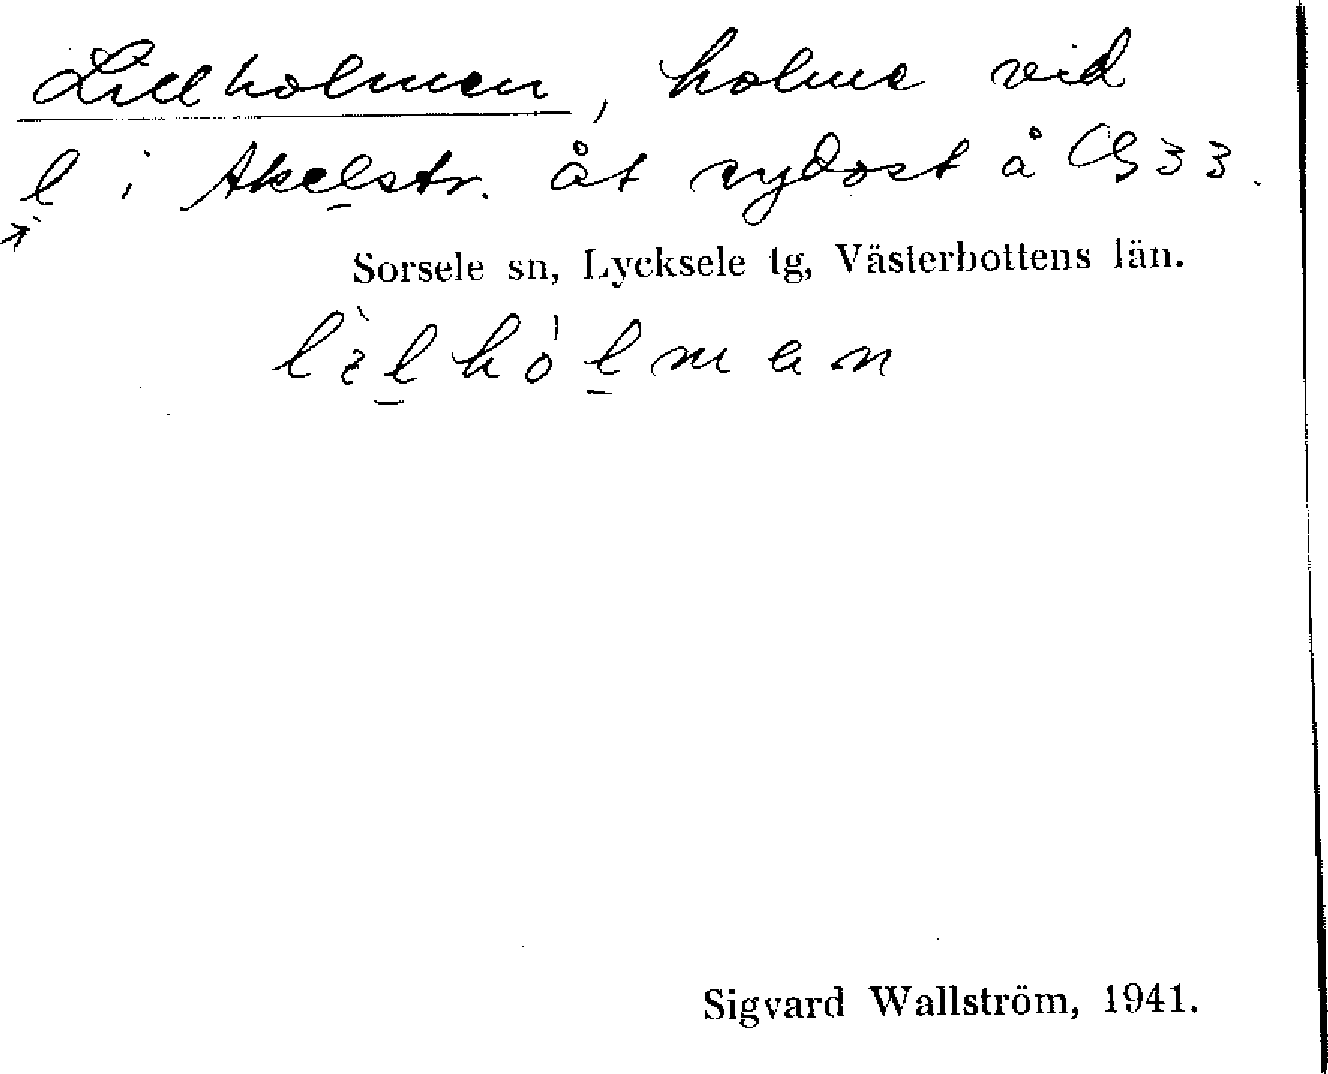 Lillholmen, holme vid
l i Akelstr. åt sydost å CG 33.
Sorsele sn, Lycksele tg, Västerbottens län.
lìlhólman
Sigvard Wallström, 1941.